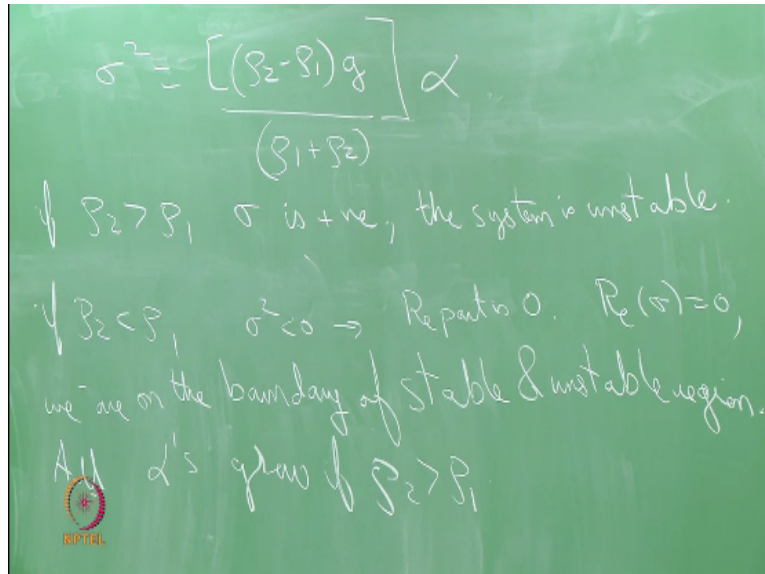 σ² = [(ρ₂-ρ₁)g / (ρ₁+ρ₂)] α
if ρ₂>ρ₁ σ is +ve, the system is unstable.
if ρ₂<ρ₁ σ²<0 → Re part is 0. Re(σ)=0,
we are on the boundary of stable & unstable region.
All α's grow if ρ₂>ρ₁
NPTEL